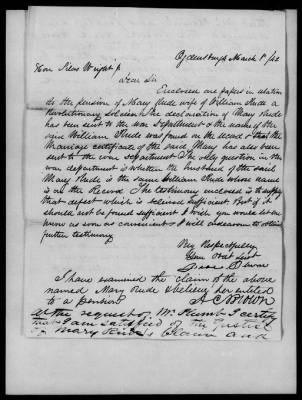 Ogdensburgh March 1st /42
Hon Silas Wright Jr
Dear Sir
Enclosed are papers in relation
to the pension of Mary Rude wife of William Rude a
Revolutionary Soldier. The declaration of Mary Rude
has been sent to the war department & the name of the
said William Rude was found on the record & that the
Marriage certificate of the said Mary has also been
sent to the war department. The only question in the
war department is whether the husband of the said
Mary Rude is the same William Rude whose name
is on the Record. The testimony enclosed is to supply
that defect which is believed sufficient. But if it
should not be found sufficient I wish you would let me
know as soon as convenient & I will endeavor to obtain
further testimony
Very Respectfully
Your Obt Servt
I have examined the claim of the above
named Mary Rude & believe her entitled
to a pension A C Brown
At the request of Mr I certify
that I am satisfied of the Justice
of Mary Rude's Claim and